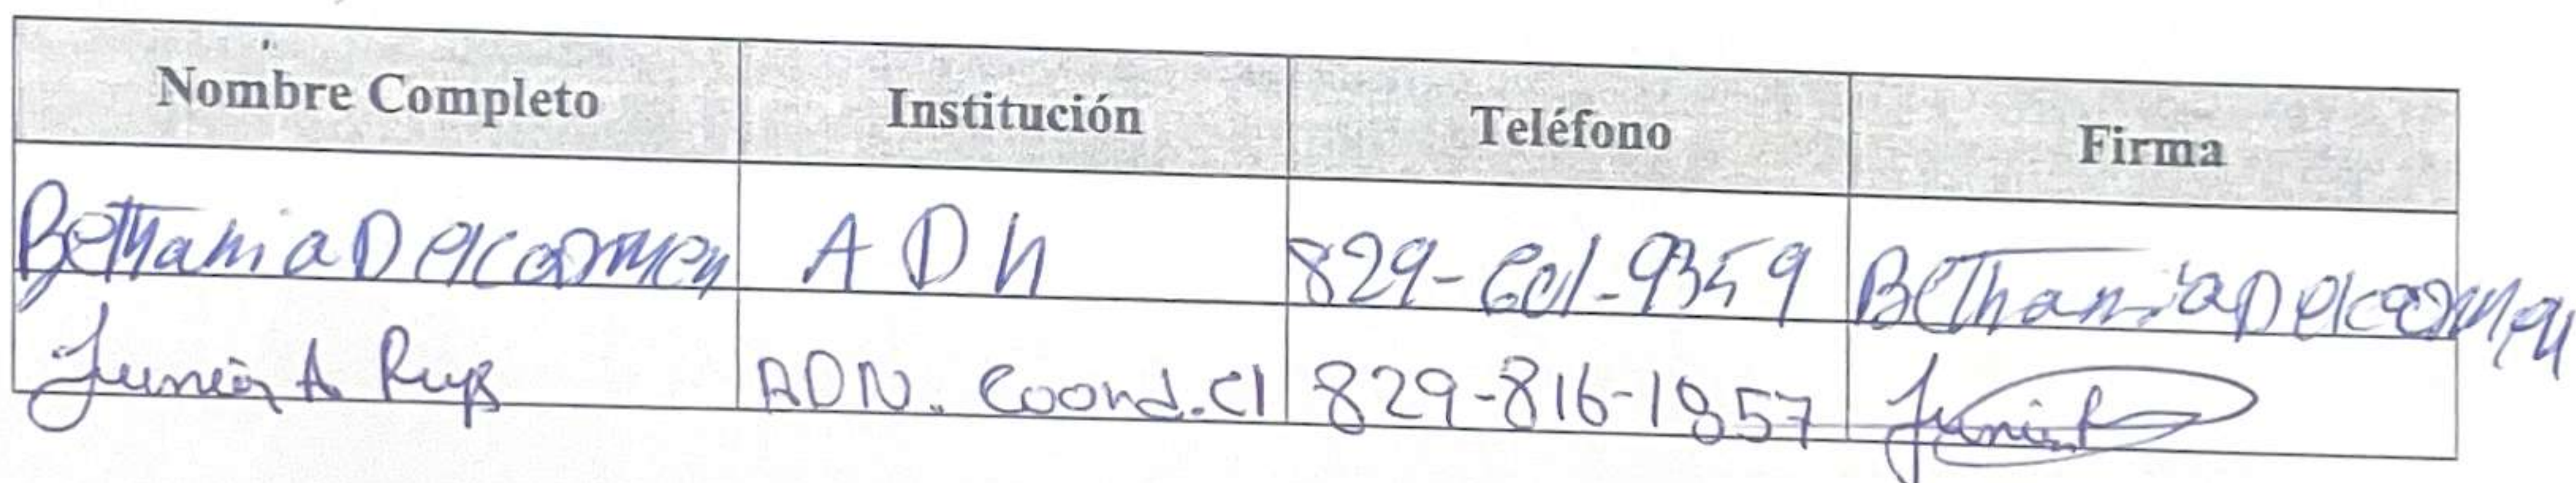 Nombre Completo Institución Teléfono Firma
Bethania Delcarmen ADN 829- -9359 Bethania Delcarmen
Junior A ADN. Coord. CI 829-816-1857 Junior R